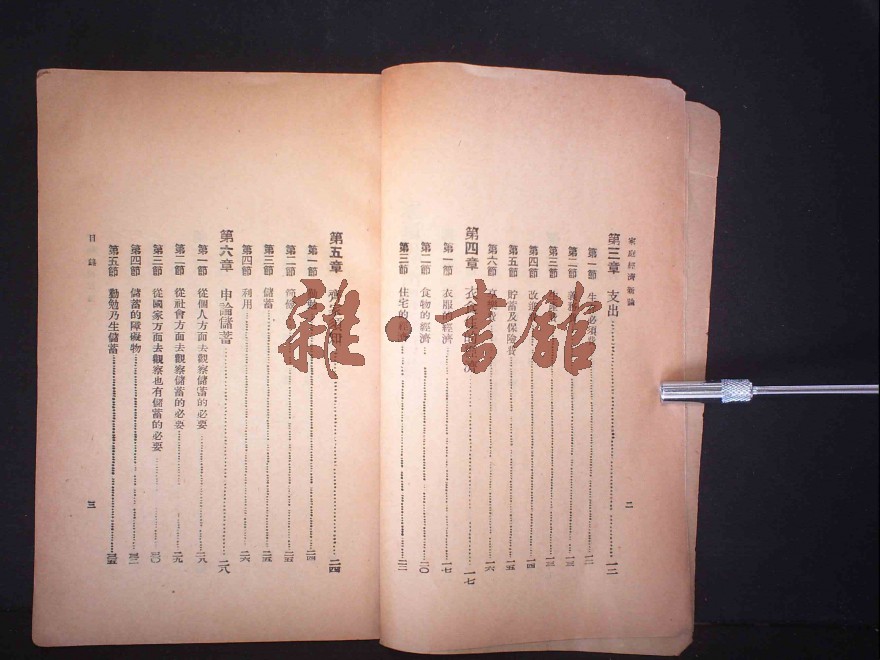 家庭經濟新論
第三章 支出 一二
第一節 生 必須費 一二
第二節 一三
第三節 一三
第四節 改 一四
第五節 貯蓄及保險費 一五
第六節 一六
第四章 衣食住的 一七
第一節 衣服 經濟 一七
第二節 食物的經濟 二〇
第三節 住宅的經濟 二二
二
第五章 二四
第一節 二四
第二節 二五
第三節 儲蓄 二五
第四節 利用 二六
第六章 申論儲蓄 二八
第一節 從個人方面去觀察儲蓄的必要 二八
第二節 從社會方面去觀察儲蓄的必要 二九
第三節 從國家方面去觀察也有儲蓄的必要 三〇
第四節 儲蓄的障礙物 三二
第五節 勤勉乃生儲蓄 三五
目錄
三
雜·書館